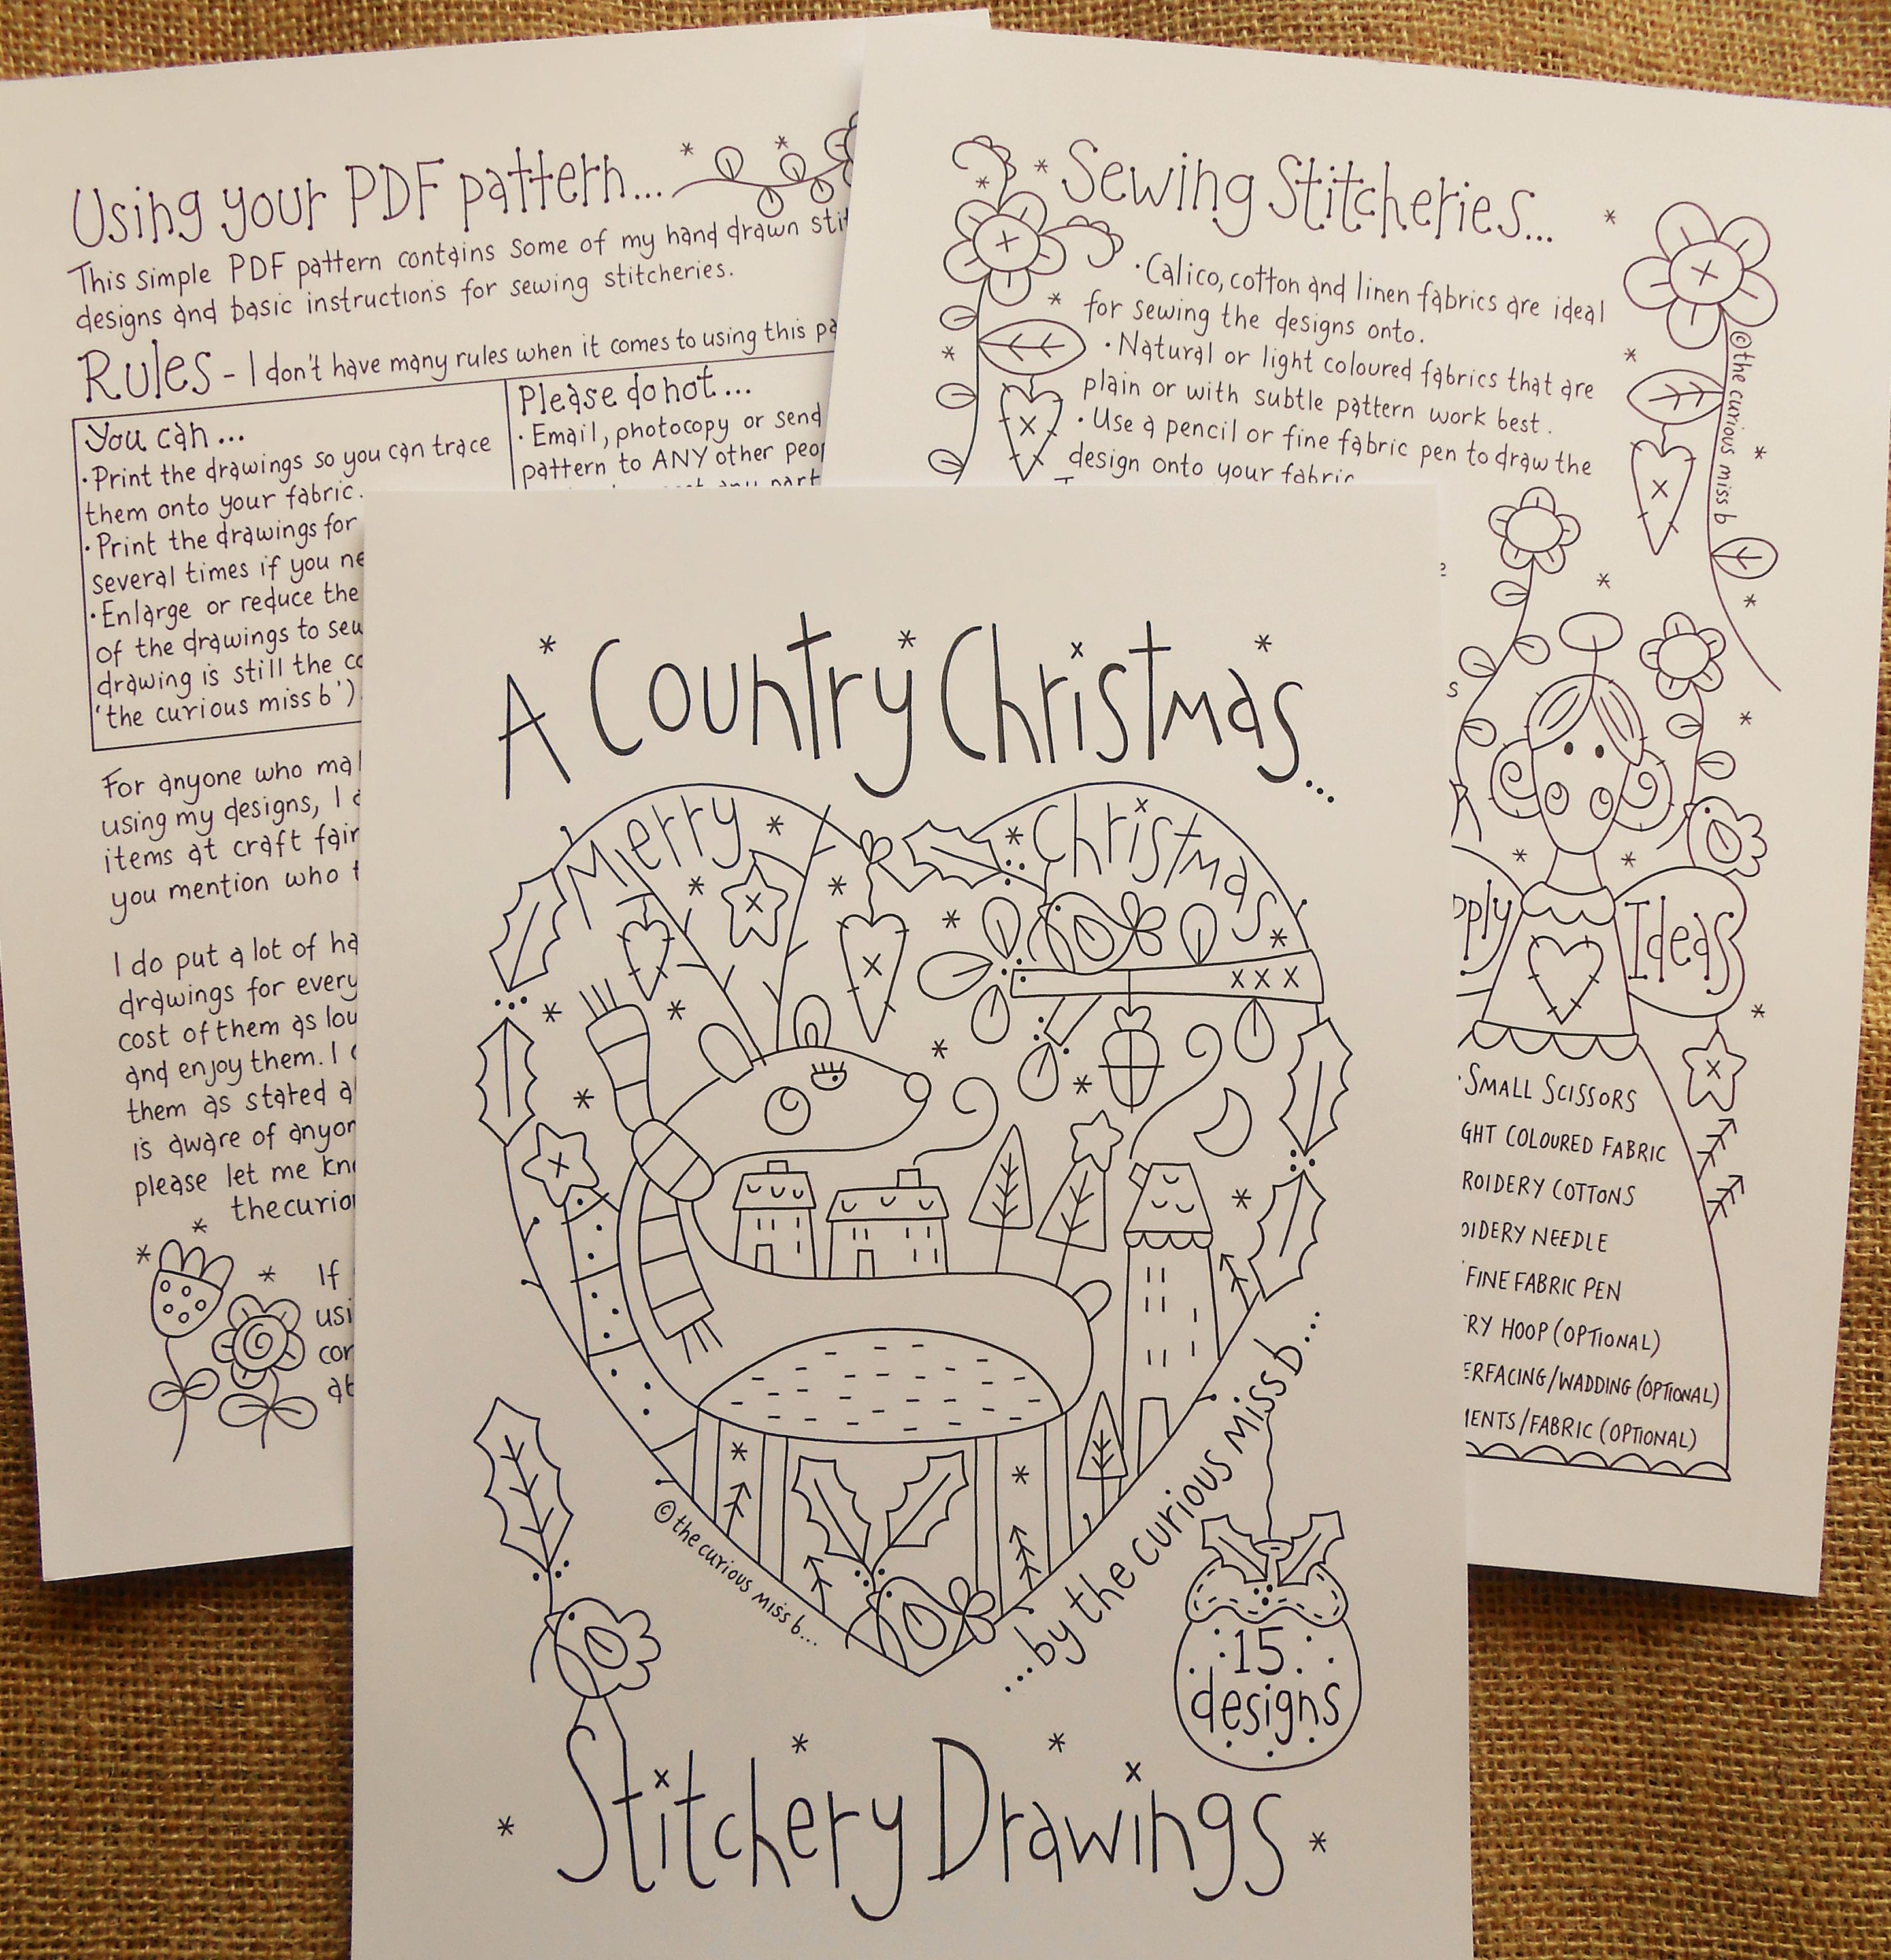 Using your PDF pattern...
This simple PDF pattern contains some of my hand drawn
designs and basic instructions for sewing stitcheries.
Rules - I don't have many rules when it comes to using this
You can...
· Print the drawings so you can trace
them onto your fabric.
· Print the drawings for
several times if you
· Enlarge or reduce the
of the drawings to
drawing is still the
'the curious miss b')
Please do not...
· Email, photocopy or send
pattern to ANY other
any part
For anyone who
using my designs, I
items at craft
you mention who
I do put a lot of
drawings for every
cost of them as
and enjoy them. I
them as stated
is aware of
please let me
If
Sewing Stitcheries...
· Calico, cotton and linen fabrics are ideal
for sewing the designs onto.
· Natural or light coloured fabrics that are
plain or with subtle pattern work best.
· Use a pencil or fine fabric pen to draw the
design onto your fabric
© the curious miss b
Ideas
· SMALL SCISSORS
COLOURED FABRIC
COTTONS
NEEDLE
FINE FABRIC PEN
HOOP (OPTIONAL)
/WADDING (OPTIONAL)
/FABRIC (OPTIONAL)
A Country Christmas...
Merry Christmas
x x x
© the curious miss b...
...by the curious miss b...
15
designs
Stitchery Drawings